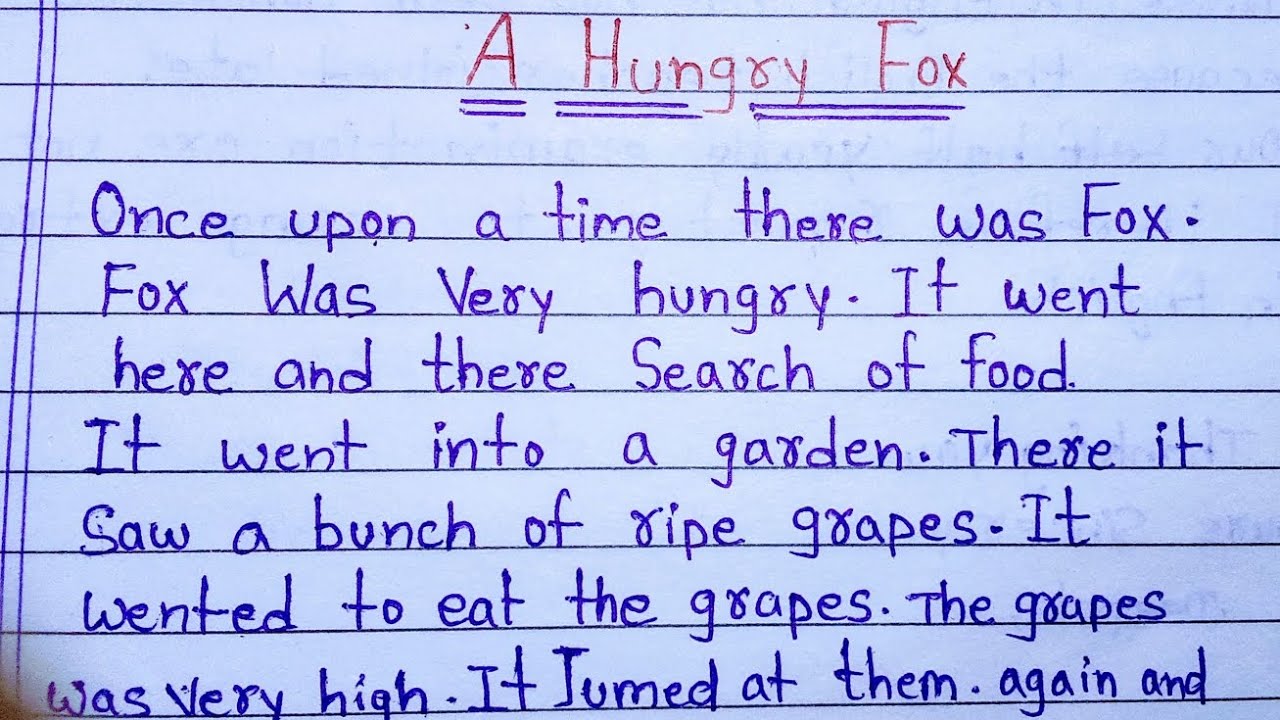 A Hungry Fox
Once upon a time there was Fox.
Fox Was Very hungry. It went
here and there Search of food.
It went into a garden. There it
Saw a bunch of ripe grapes. It
wented to eat the grapes. The grapes
was very high. It Jumed at them. again and